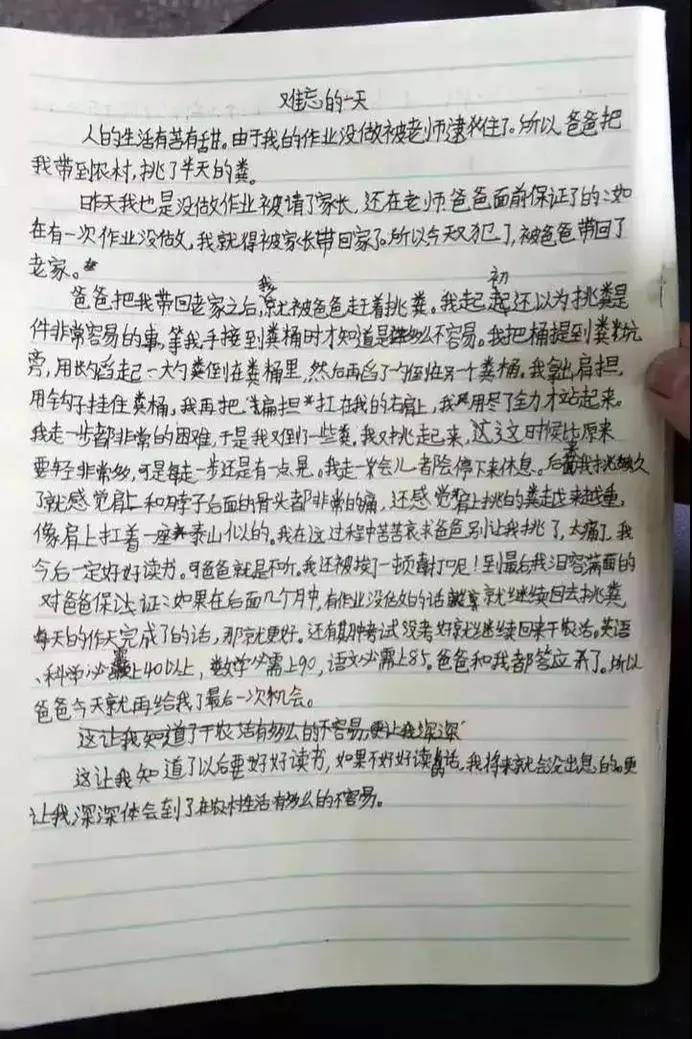 难忘的一天
人的生活有苦有甜。由于我的作业没做被老师逮住了。所以爸爸把
我带到农村,挑了半天的粪。
昨天我也是没做作业被请了家长,还在老师爸爸面前保证了的:如
在有一次作业没做,我就得被家长带回家了。所以今天又犯了,被爸爸带回了
老家。
爸爸把我带回老家之后,我就被爸爸赶着挑粪。我起初还以为挑粪是
件非常容易的事,等我手接到粪桶时才知道是多么不容易。我把桶提到粪坑
旁,用大勺舀起一大勺粪倒在粪桶里,然后再舀了一勺倒在另一个粪桶。我拿出肩担,
用钩子挂住粪桶,我再把扁担扛在我的右肩上,我用尽了全力才站起来。
我走一步都非常的困难,于是我又倒了一些粪,我又挑起来,这时候比原来
要轻非常多,可是每走一步还是有一点晃。我走一会儿都险停下来休息。后面我挑久
了就感觉肩上和脖子后面的骨头都非常的痛,还感觉肩上挑的粪越来越重,
像肩上扛着一座泰山似的。我在这过程中苦苦哀求爸爸别让我挑了,太痛了,我
今后一定好好读书。可爸爸就是不听。我还被挨了一顿毒打呢!到最后我泪容满面的
对爸爸保证:如果在后面几个月中,有作业没做的话就继续回去挑粪,
每天的作天完成了的话,那就更好。还有期中考试没考好就继续回来干农活。英语
、科学必需上40以上,数学必需上90,语文必需上85。爸爸和我都答应了。所以
爸爸今天就再给我了最后一次机会。
这让我知道了干农活有多么的不容易,更让我深深
这让我知道了以后要好好读书,如果不好好读的话,我将来就会没出息的。更
让我深深体会到了在农村生活有多么的不容易。